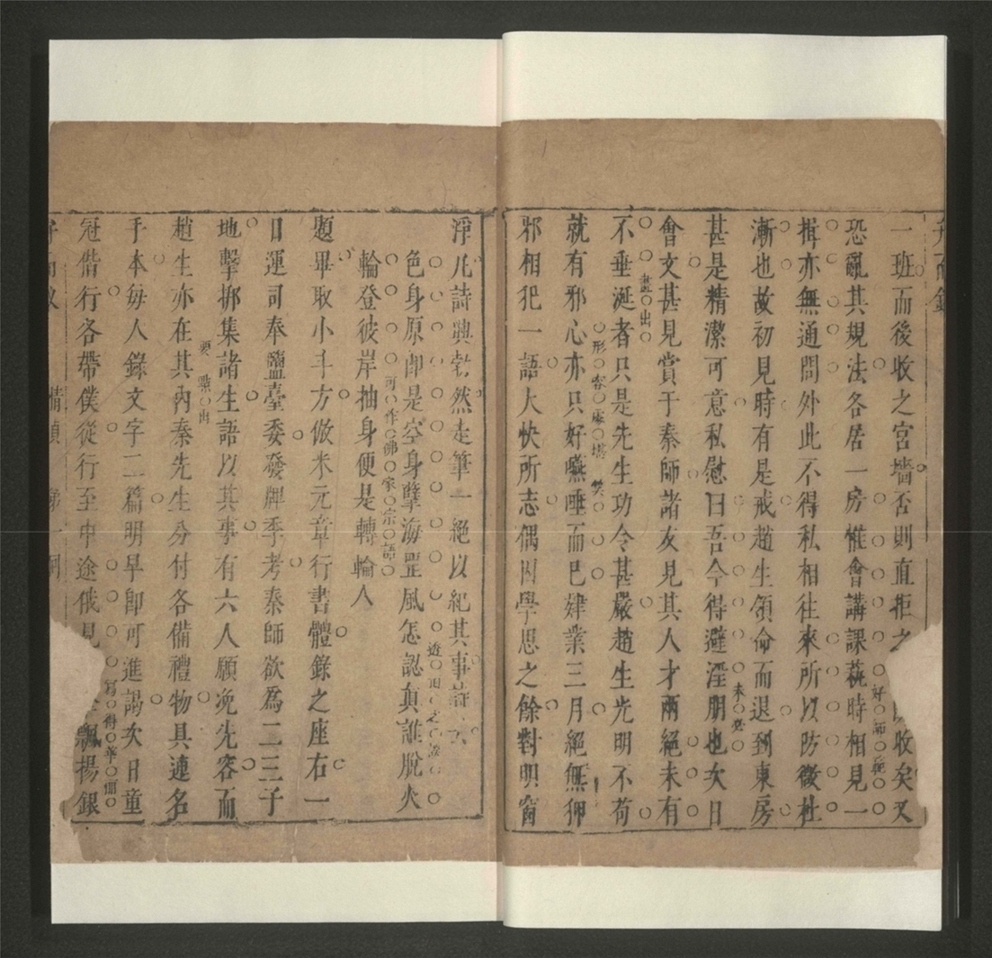 一班而後收之宮墻否則直拒之收矣又
恐亂其規法各居一房惟會講課蓺時相見一
揖亦無通問外此不得私相往來所以防微杜
漸也故初見時有是戒趙生領命而退到東房
甚是精潔可意私慰曰吾今得避淫朋也次日
會文甚見賞于秦師諸友見其人才兩絕未有
不垂涎者只是先生功令甚嚴趙生光明不苟
就有邪心亦只好嚥唾而已肄業三月絕無狎
邪相犯一語大快所志偶因學思之餘對明窗
淨几詩興勃然走筆一絕以紀其事詩云
色身原即是空身孽海罡風怎認真誰脫火
輪登彼岸抽身便是轉輪人
題畢取小斗方倣米元章行書體錄之座右一
日運司奉鹽臺委發牌季考秦師欲為二三子
地擊梆集諸生語以其事有六人願凂先容而
趙生亦在其內秦先生分付各備禮物具連名
手本每人錄文字二篇明早即可進謁次日童
冠偕行各帶僕從行至中途俄見飄揚銀